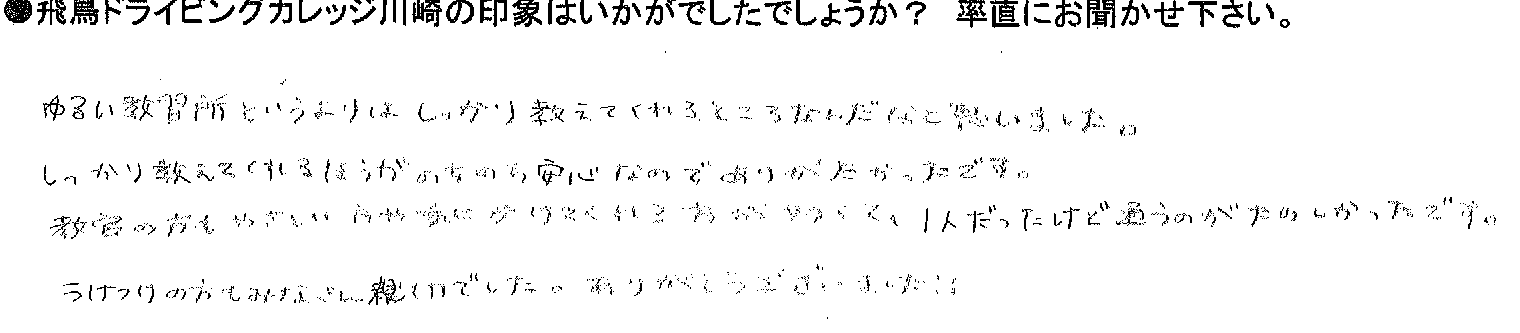 ●飛鳥ドライビングカレッジ川崎の印象はいかがでしたでしょうか？ 率直にお聞かせ下さい。
ゆるい教習所というよりはしっかり教えてくれるところなんだなと思いました。
しっかり教えてくれるほうがのちのち安心なのでありがたかったです。
教官の方もやさしい くれる方が 1人だったけど通うのがたのしかったです。
うけつけの方もみなさん親切でした。ありがとうございました!!